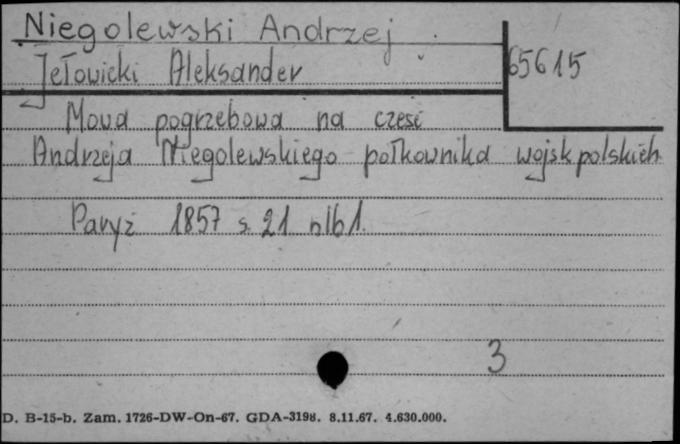 Niegolewski Andrzej
Jełowicki Aleksander
65615
Mowa pogrzebowa na cześć
Andrzeja Niegolewskiego połkownika wojsk polskich
Paryż 1857 s. 21 nlb 1.
3
D. B-15-b. Zam. 1726-DW-On-67. GDA-3198. 8.11.67. 4.630.000.